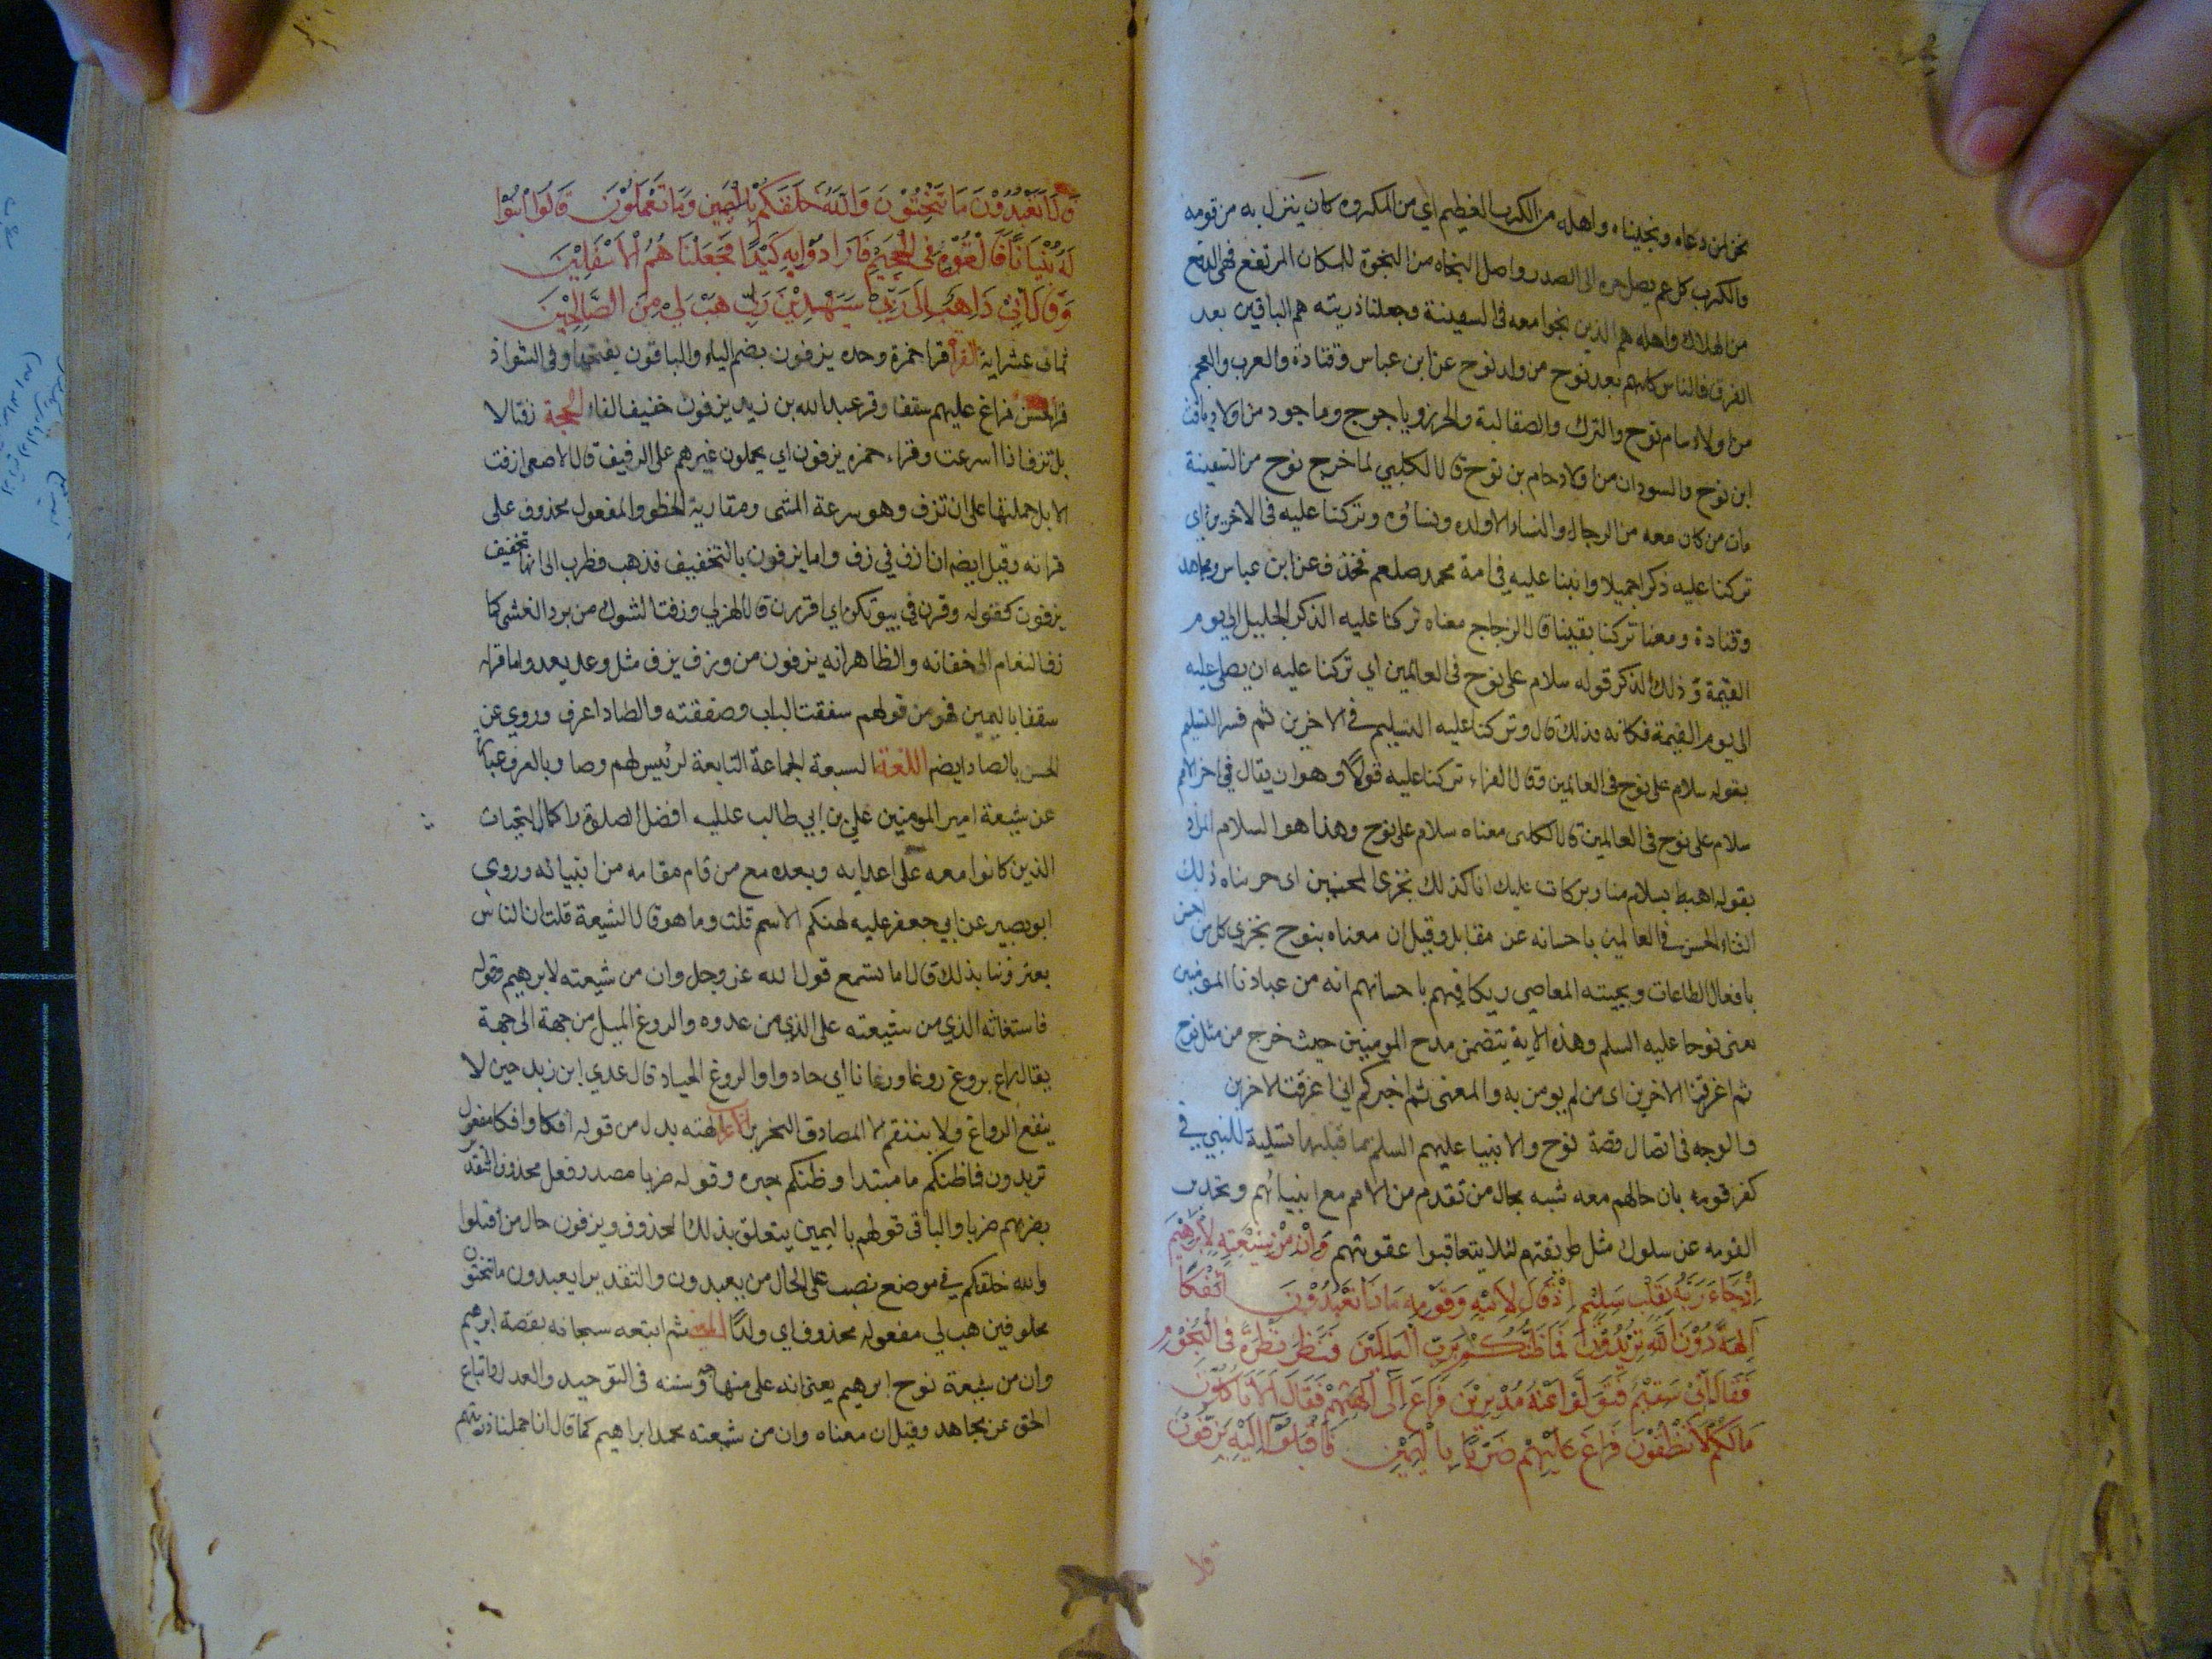 نحن لمن دعاه ونجيناه واهله من الكرب العظيم اي من المكروه كان ينزل به من قومه
والكرب كل غم يصل حره الى الصدر واصل النجاه من النجوة للمكان المرتفع فهي الرفع
من الهلاك واهله هم الذين نجوا معه في السفينة وجعلنا ذريته هم الباقين بعد
الغرق فالناس كلهم بعد نوح من ولد نوح عن ابن عباس وقتادة والعرب والعجم
من اولاد سام نوح والترك والصقالبة والخزر وياجوج وماجوج من اولاد يافث
ابن نوح والسودان من اولاد حام بن نوح قال الكلبي لما خرج نوح من السفينة
مات من كان معه من الرجال والنساء الا ولده ونساؤه وتركنا عليه في الاخرين اي
تركنا عليه ذكرا جميلا واثنينا عليه في امة محمد صلعم فحذف عن ابن عباس ومجاهد
وقتادة ومعنا تركنا بقينا قال الزجاج معناه تركنا عليه الذكر الجليل الى يوم
القيمة وذلك الذكر قوله سلام على نوح في العالمين اي تركنا عليه ان يصلى عليه
الى يوم القيمة فكانه قال وتركنا عليه التسليم في الاخرين ثم فسر التسليم
بقوله سلام على نوح في العالمين وقال الفراء تركنا عليه قولا وهو ان يقال في اخر الامم
سلام على نوح في العالمين قال الكلبي معناه سلام على نوح وهذا هو السلام المراد
بقوله اهبط بسلام منا وبركات عليك انا كذلك نجزي المحسنين اي جزيناه ذلك
الثناء الحسن في العالمين باحسانه عن مقابل وقيل ان معناه بنوح نجزي كل من احسن
بافعال الطاعات وتجنبه المعاصي ويكافيهم باحسانهم انه من عبادنا المومنين
يعني نوحا عليه السلم وهذه الاية يتضمن مدح المومنين حيث خرج من مثل نوح
ثم اغرقنا الاخرين اي من لم يومن به والمعنى ثم اخبركم اني اغرقت الاخرين
والوجه في اتصال قصة نوح والانبيا عليهم السلم بما قبلها تسلية للنبي في
كفر قومه بان حالهم معه شبه بحال من تقدم من الامم مع انبيائهم وتحذير
القومه عن سلوك مثل طريقتهم لئلا يتعاقبوا عقوبتهم وَاِنَّ مِنْ شِيْعَتِهِ لِاِبْرٰهِيْمَ
اِذْ جَاءَ رَبَّهُ بِقَلْبٍ سَلِيْمٍ اِذْ قَالَ لِاَبِيْهِ وَقَوْمِهِ مَاذَا تَعْبُدُوْنَ اَئِفْكًا
اٰلِهَةً دُوْنَ اللّٰهِ تُرِيْدُوْنَ فَمَا ظَنُّكُمْ بِرَبِّ الْعَالَمِيْنَ فَنَظَرَ نَظْرَةً فِى النُّجُوْمِ
فَقَالَ اِنِّىْ سَقِيْمٌ فَتَوَلَّوْا عَنْهُ مُدْبِرِيْنَ فَرَاغَ اِلٰى اٰلِهَتِهِمْ فَقَالَ اَلَا تَاْكُلُوْنَ
مَالَكُمْ لَا تَنْطِقُوْنَ فَرَاغَ عَلَيْهِمْ ضَرْبًا بِالْيَمِيْنِ فَاَقْبَلُوْا اِلَيْهِ يَزِفُّوْنَ
قال
قَالَ اَتَعْبُدُوْنَ مَا تَنْحِتُوْنَ وَاللّٰهُ خَلَقَكُمْ وَمَا تَعْمَلُوْنَ قَالُوْا ابْنُوْا
لَهُ بُنْيَانًا فَاَلْقُوْهُ فِى الْجَحِيْمِ فَاَرَادُوْا بِهِ كَيْدًا فَجَعَلْنَا هُمُ الْاَسْفَلِيْنَ
وَقَالَ اِنِّىْ ذَاهِبٌ اِلٰى رَبِّىْ سَيَهْدِيْنِ رَبِّ هَبْ لِىْ مِنَ الصَّالِحِيْنَ
ثمان عشر اية القرأ قرا حمزة وحده يزفون بضم الياء والباقون بفتحها وفي الشواذ
قرا الحسن فراغ عليهم سفقا وقرء عبد الله بن زيد يزفون خفيف الفاء الحجة زفت الا
بل تزف اذا اسرعت وقراءة حمزه يزفون اي يحملون غيرهم على الزفيف قال الاصمعي ازفت
الابل حملتها على ان تزف وهو سرعة المشي ومقاربة الخطو والمفعول محذوف على
قرانه وقيل ايضا ان ازف في زف واما يزفون بالتخفيف فذهب قطرب الى انها تخفيف
يزفون كقوله وقرن في بيوتكن اي اقررن قال الهزلي وزفت الشول من برد العشي كما
زف النعام الى حفانه والظاهر انه يزفون من وزف يزف مثل وعد يعد واما قرانه
سقفا باليمين فهو من قولهم سفقت الباب وصفقته والصاد اعرف وروي عن
الحسن بالصاد ايضم اللغة الشيعة الجماعة التابعة لرئيس لهم وصار بالعرف عبارة
عن شيعة امير المومنين علي بن ابي طالب عليه افضل الصلوة واكمال التحيات
الذين كانوا معه على اعدايه وبعده مع من قام مقامه من ابنيائه وروي
ابو بصير عن ابي جعفر عليه لهنكم الاسم قلت وما هو قال الشيعة قلت ان الناس
يعيروننا بذلك قال اما تسمع قول الله عز وجل وان من شيعته لابرهيم وقوله
فاستغاثه الذي من شيعته على الذي من عدوه والروغ الميل من جهة الى جهة
يقال راغ يروغ روغا وروغانا اي حاد واوالروغ الحياد قال عدي ابن زيد حين لا
ينفع الرواغ ولا ينفع الا المصادق النحرير الاعراب الهته بدل من قوله افكا وافكا مفعول
تريدون فما ظنكم ما مبتدا وظنكم خبره وقوله ضربا مصدر فعل محذوف التقدير
يضربهم ضربا والباقي قولهم باليمين يتعلق بذلك المحذوف ويزفون حال من اقبلوا
والله خلقكم في موضع نصب على الحال من يعبدون والتقدير ايعبدون ما تنحتون
مخلوقين هب لي مفعوله محذوف اي ولدًا المعنى ثم اتبعه سبحانه بقصة ابرهيم
وان من شيعة نوح ابرهيم يعني انه على منهاجه وسنته في التوحيد والعدل واتباع
الحق عن مجاهد وقيل ان معناه وان من شيعته محمد ابراهيم كما قال انا حملنا ذريتهم